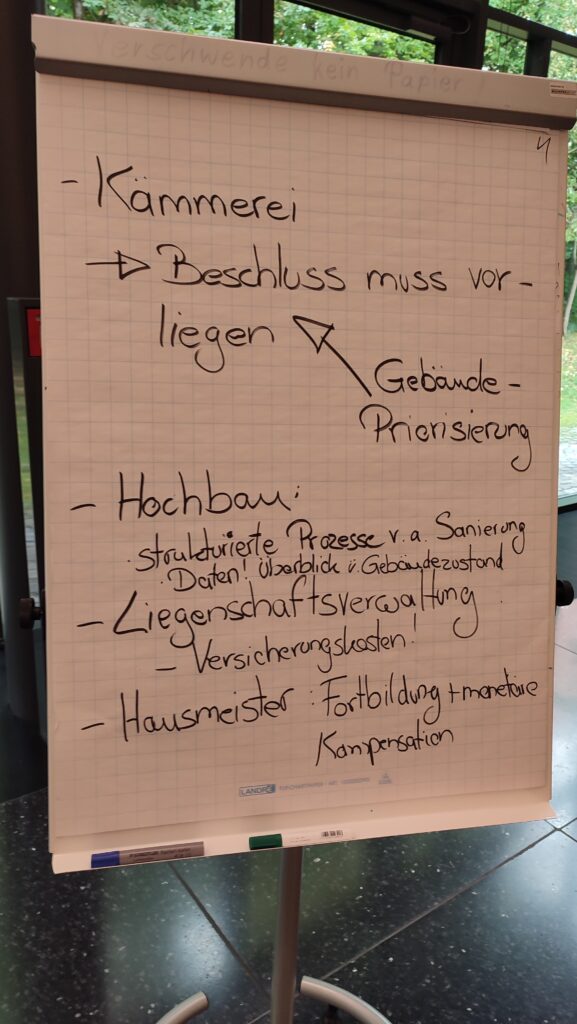 Verschwende kein Papier!
4
- Kämmerei
→ Beschluss muss vor-
liegen
Gebäude-
Priorisierung
- Hochbau:
· strukturierte Prozesse v. a. Sanierung
· Daten! Überblick ü. Gebäudezustand
- Liegenschaftsverwaltung
- Versicherungskosten!
- Hausmeister: Fortbildung + monetäre
Kompensation
LANDRÉ